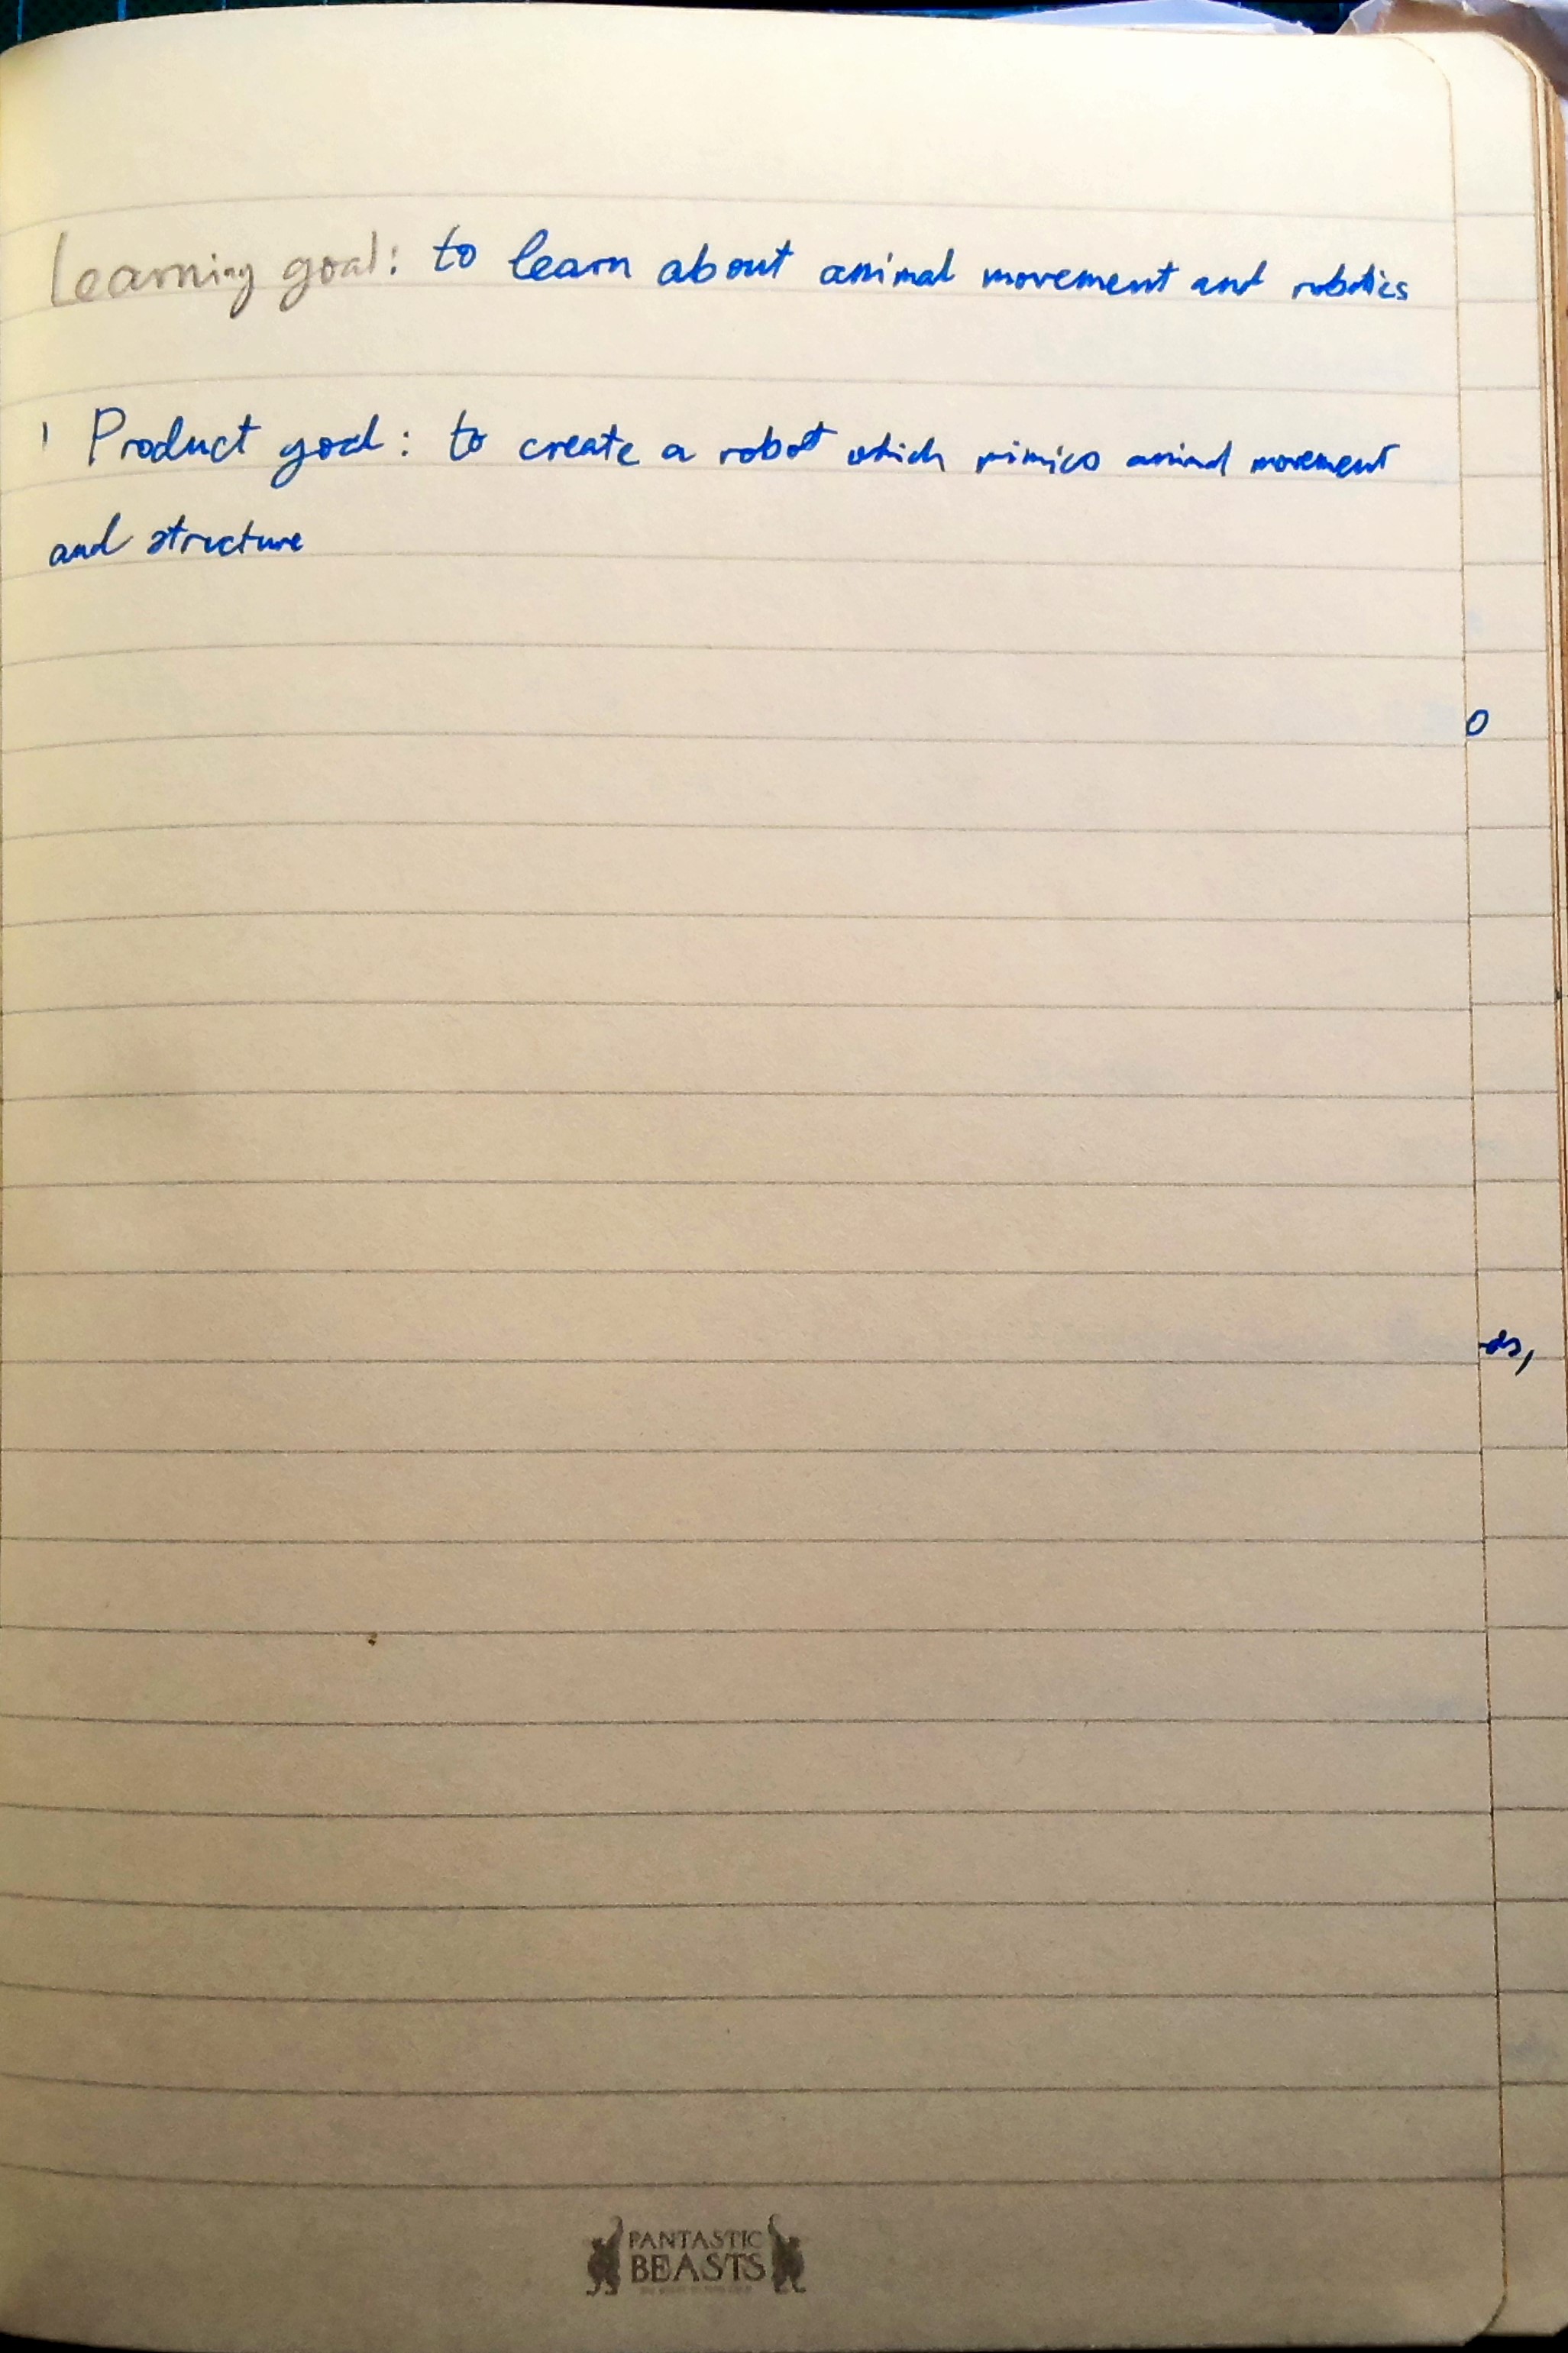 Learning goal: to learn about animal movement and robotics
Product goal: to create a robot which mimics animal movement
and structure
o
ds,
FANTASTIC
BEASTS